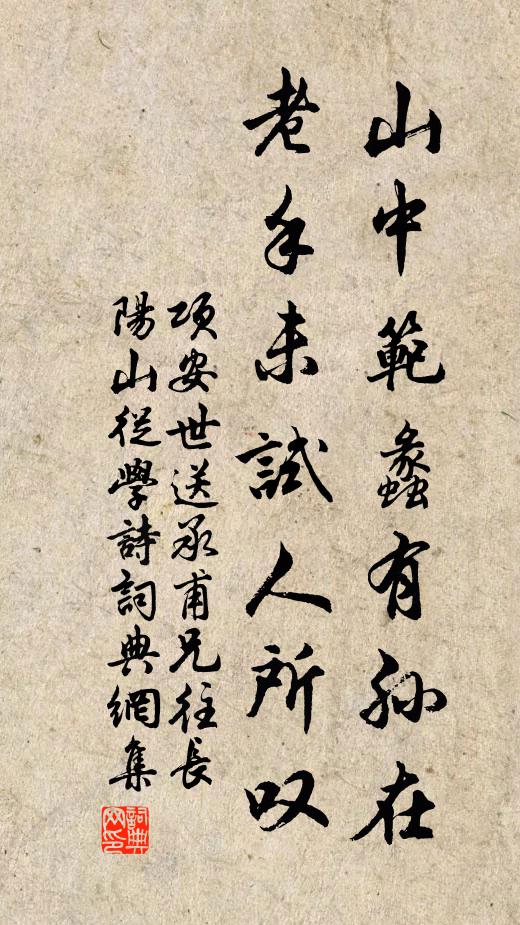 山中範蠡有孙在
老手未試人所叹
項安世送承甫兄往長
陽山從學詩詞典網集
詞典网印